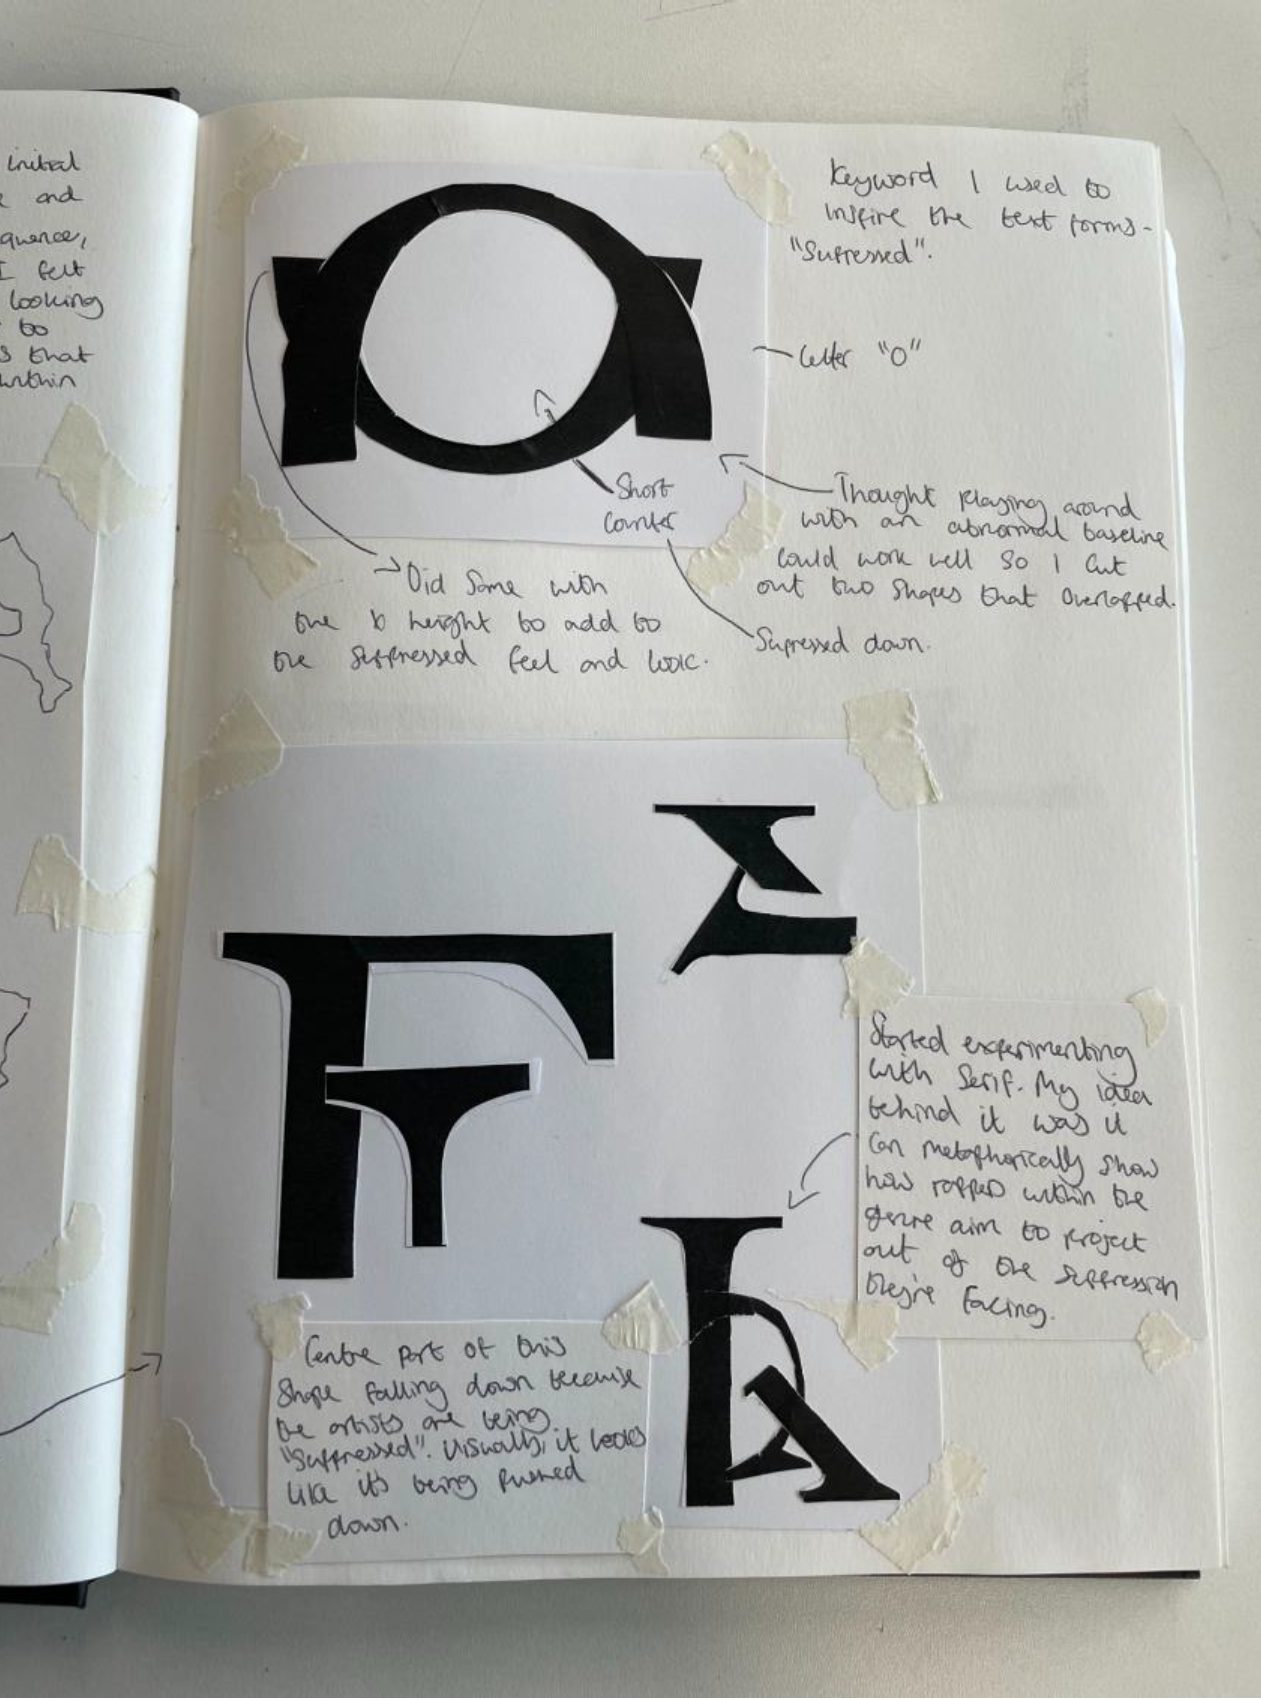 initial
and
quence,
I felt
looking
to
s that
within
Keyword I used to
inspire the text forms-
"Supressed".
Letter "O"
Short
counter
Thought playing around
with an abnormal baseline
could work well so I cut
out two shapes that overlapped.
Did same with
the x height to add to
the suppressed feel and look.
Supressed down.
Started experimenting
with Serif. My idea
behind it was it
can metaphorically show
how rappers within the
genre aim to project
out of the suppression
they're facing.
Centre part of this
shape falling down because
the artists are being
"Suppressed". Visually, it looks
like it's being pushed
down.